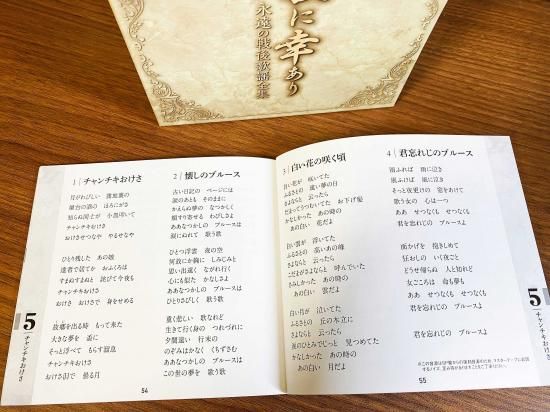 に幸あり
永遠の戦後歌謡全集
1 チャンチキおけさ
月がわびしい 露地裏の
屋台の酒の ほろにがさ
知らぬ同士が 小皿叩いて
チャンチキおけさ
おけさせつなや やるせなや
ひとり残した あの娘
達者で居てか おふくろは
すまぬすまぬと 詫びて今夜も
チャンチキおけさ
おけさ おけさで 身をせめる
故郷を出る時 もって来た
大きな夢を 盃に
そっと浮べて もらす溜息
チャンチキおけさ
おけさ涙で 曇る月
2 懐しのブルース
古い日記の ページには
涙のあとも そのままに
かえらぬ夢の なつかしく
頬すり寄せる わびしさよ
ああなつかしの ブルースは
涙にぬれて 歌う歌
ひとつ浮雲 夜の空
何故にか胸に しみじみと
思い出遠く ながれ行く
心にも似た かなしさよ
ああなつかしの ブルースは
ひとりさびしく 歌う歌
重く悲しい 歌なれど
生きて行く身の つれづれに
夕闇遠い 行末の
のぞみはかなく くちずさむ
ああなつかしの ブルースは
この世の夢を 歌う歌
5 チャンチキおけさ
54
3 白い花の咲く頃
白い花が 咲いてた
ふるさとの 遠い夢の日
さよならと 云ったら
だまってうつむいてた お下げ髪
かなしかった あの時の
あの白い 花だよ
白い雲が 浮いてた
ふるさとの 高いあの峰
さよならと 云ったら
こだまがさよならと 呼んでいた
さみしかった あの時の
あの白い 雲だよ
白い月が 泣いてた
ふるさとの 丘の木立に
さよならと 云ったら
涙のひとみでじっと 見つめてた
かなしかった あの時の
あの白い 月だよ
4 君忘れじのブルース
雨ふれば 雨に泣き
風ふけば 風に泣き
そっと夜更けの 窓をあけて
歌う女の 心は一つ
ああ せつなくも せつなくも
君を忘れじの ブルースよ
面かげを 抱きしめて
狂おしの いく夜ごと
どうせ帰らぬ 人と知れど
女ごころは 命も夢も
ああ せつなくも せつなくも
君を忘れじの ブルースよ
君を忘れじの ブルースよ
5 チャンチキおけさ
55